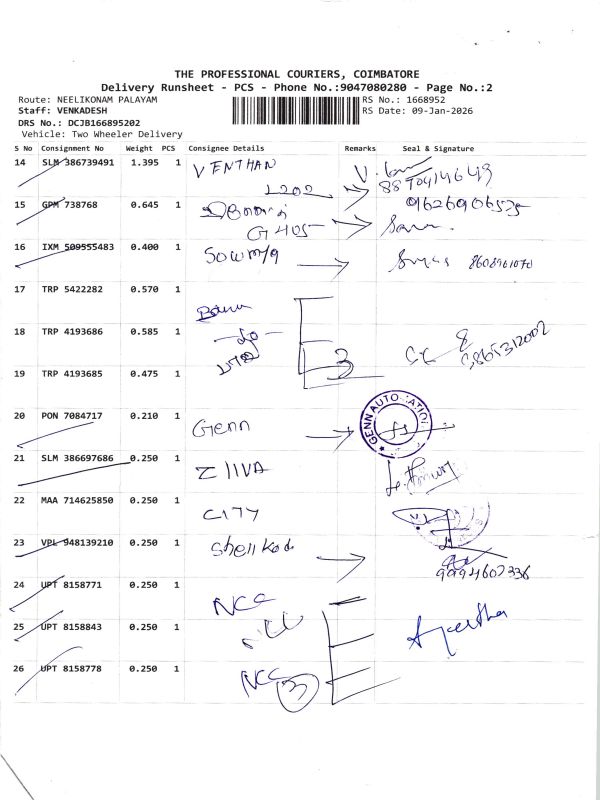 THE PROFESSIONAL COURIERS, COIMBATORE
Delivery Runsheet - PCS - Phone No.:9047080280 - Page No.:2
Route: NEELIKONAM PALAYAM
RS No.: 1668952
Staff: VENKADESH
RS Date: 09-Jan-2026
DRS No.: DCJB166895202
Vehicle: Two Wheeler Delivery
S No Consignment No Weight PCS Consignee Details Remarks Seal & Signature
14 SLM 386739491 1.395 1 VENTHAN
15 GPM 738768 0.645 1
G 405
16 IXM 509555483 0.400 1 Sowmya 8608961070
17 TRP 5422282 0.570 1
18 TRP 4193686 0.585 1
3
19 TRP 4193685 0.475 1
20 PON 7084717 0.210 1 Genn GENN AUTOMATION
21 SLM 386697686 0.250 1 ZIIVA
22 MAA 714625850 0.250 1 CITY
23 VPL 948139210 0.250 1 Shellkode
9994602336
24 UPT 8158771 0.250 1 NCC
25 UPT 8158843 0.250 1 NCC
26 UPT 8158778 0.250 1 NCC 3